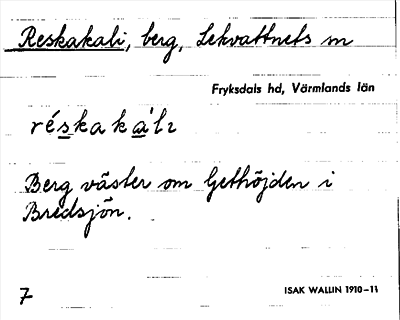 Reskakali, berg, Lekvattnets sn
Fryksdals hd, Värmlands län
réskaka`lɩ
Berg väster om Gethöjden i
Bredsjön.
7
ISAK WALLIN 1910-11